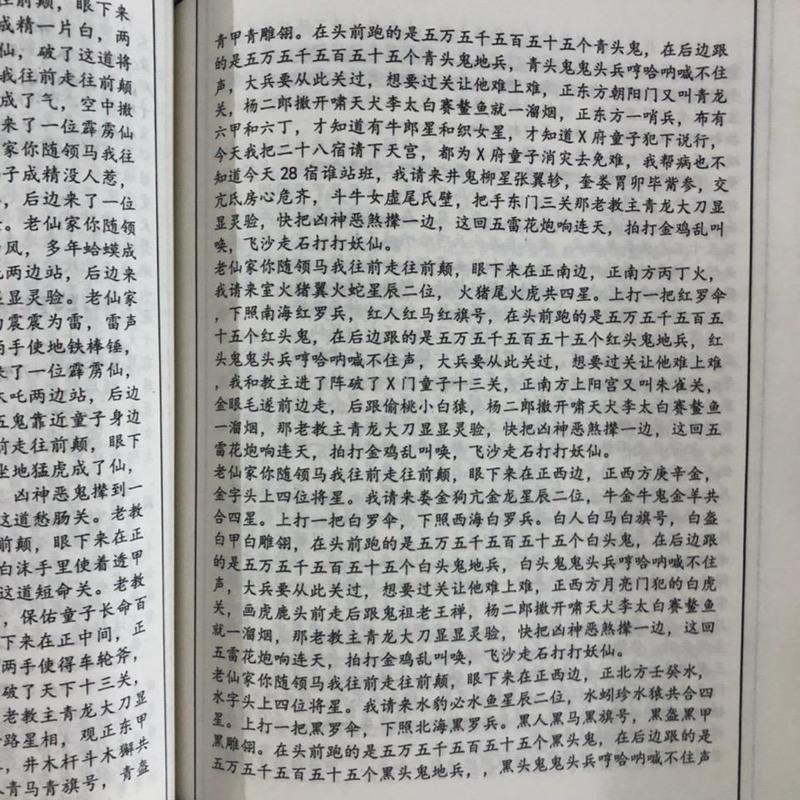 往前颠，眼下来
成精一片白，两
仙，破了这道将
我往前走往前颠
成了气，空中撒
来了一位霹雳仙
家你随领马我往
子成精没人惹，
，后边来了一位
。老仙家你随领
风，多年蛤蟆成
两边站，后边来
显灵验。老仙家
震震为雷，雷声
两手使地铁棒锤，
来了一位霹雳仙，
吒两边站，后边
五鬼靠近童子身边
前走往前颠，眼下
坐地猛虎成了仙，
凶神恶鬼撵到一
这道愁肠关。老教
前颠，眼下来在正
白沫手里使着透甲
这道短命关。老教
，保佑童子长命百
下来在正中间，正
两手使得车轮斧，
破了天下十三关，
老教主青龙大刀显
路星相，观正东甲
，井木杆斗木獬共
人青马青旗号，青盔
青甲青雕翎。在头前跑的是五万五千五百五十五个青头鬼，在后边跟
的是五万五千五百五十五个青头鬼地兵，青头鬼鬼头兵哼哈呐喊不住
声，大兵要从此关过，想要过关让他难上难，正东方朝阳门又叫青龙
关，杨二郎撒开啸天犬李太白赛鳌鱼就一溜烟，正东方一哨兵，布有
六甲和六丁，才知道有牛郎星和织女星，才知道X府童子犯下说行，
今天我把二十八宿请下天宫，都为X府童子消灾去免难，我帮病也不
知道今天28宿谁站班，我请来井鬼柳星张翼轸，奎娄胃卯毕觜参，交
亢氐房心危齐，斗牛女虚尾氏壁，把手东门三关那老教主青龙大刀显
显灵验，快把凶神恶煞撵一边，这回五雷花炮响连天，拍打金鸡乱叫
唤，飞沙走石打打妖仙。
老仙家你随领马我往前走往前颠，眼下来在正南边，正南方丙丁火，
我请来室火猪翼火蛇星辰二位，火猪尾火虎共四星。上打一把红罗伞
，下照南海红罗兵，红人红马红旗号，在头前跑的是五万五千五百五
十五个红头鬼，在后边跟的是五万五千五百五十五个红头鬼地兵，红
头鬼鬼头兵哼哈呐喊不住声，大兵要从此关过，想要过关让他难上难
，我和教主进了阵破了X门童子十三关，正南方上阳宫又叫朱雀关，
金眼毛遂前边走，后跟偷桃小白猿，杨二郎撒开啸天犬李太白赛鳌鱼
一溜烟，那老教主青龙大刀显显灵验，快把凶神恶煞撵一边，这回五
雷花炮响连天，拍打金鸡乱叫唤，飞沙走石打打妖仙。
老仙家你随领马我往前走往前颠，眼下来在正西边，正西方庚辛金，
金字头上四位将星。我请来娄金狗亢金龙星辰二位，牛金牛鬼金羊共
合四星。上打一把白罗伞，下照西海白罗兵。白人白马白旗号，白盔
白甲白雕翎，在头前跑的是五万五千五百五十五个白头鬼，在后边跟
的是五万五千五百五十五个白头鬼地兵，白头鬼鬼头兵哼哈呐喊不住
声，大兵要从此关过，想要过关让他难上难，正西方月亮门犯的白虎
关，画虎鹿头前走后跟鬼祖老王禅，杨二郎撒开啸天犬李太白赛鳌鱼
就一溜烟，那老教主青龙大刀显显灵验，快把凶神恶煞撵一边，这回
五雷花炮响连天，拍打金鸡乱叫唤，飞沙走石打打妖仙。
老仙家你随领马我往前走往前颠，眼下来在正西边，正北方壬癸水，
水字头上四位将星。我请来水豹必水鱼星辰二位，水蚓珍水猿共合四
星。上打一把黑罗伞，下照北海黑罗兵。黑人黑马黑旗号，黑盔黑甲
黑雕翎。在头前跑的是五万五千五百五十五个黑头鬼，在后边跟的是
五万五千五百五十五个黑头鬼地兵，，黑头鬼鬼头兵哼哈呐喊不住声